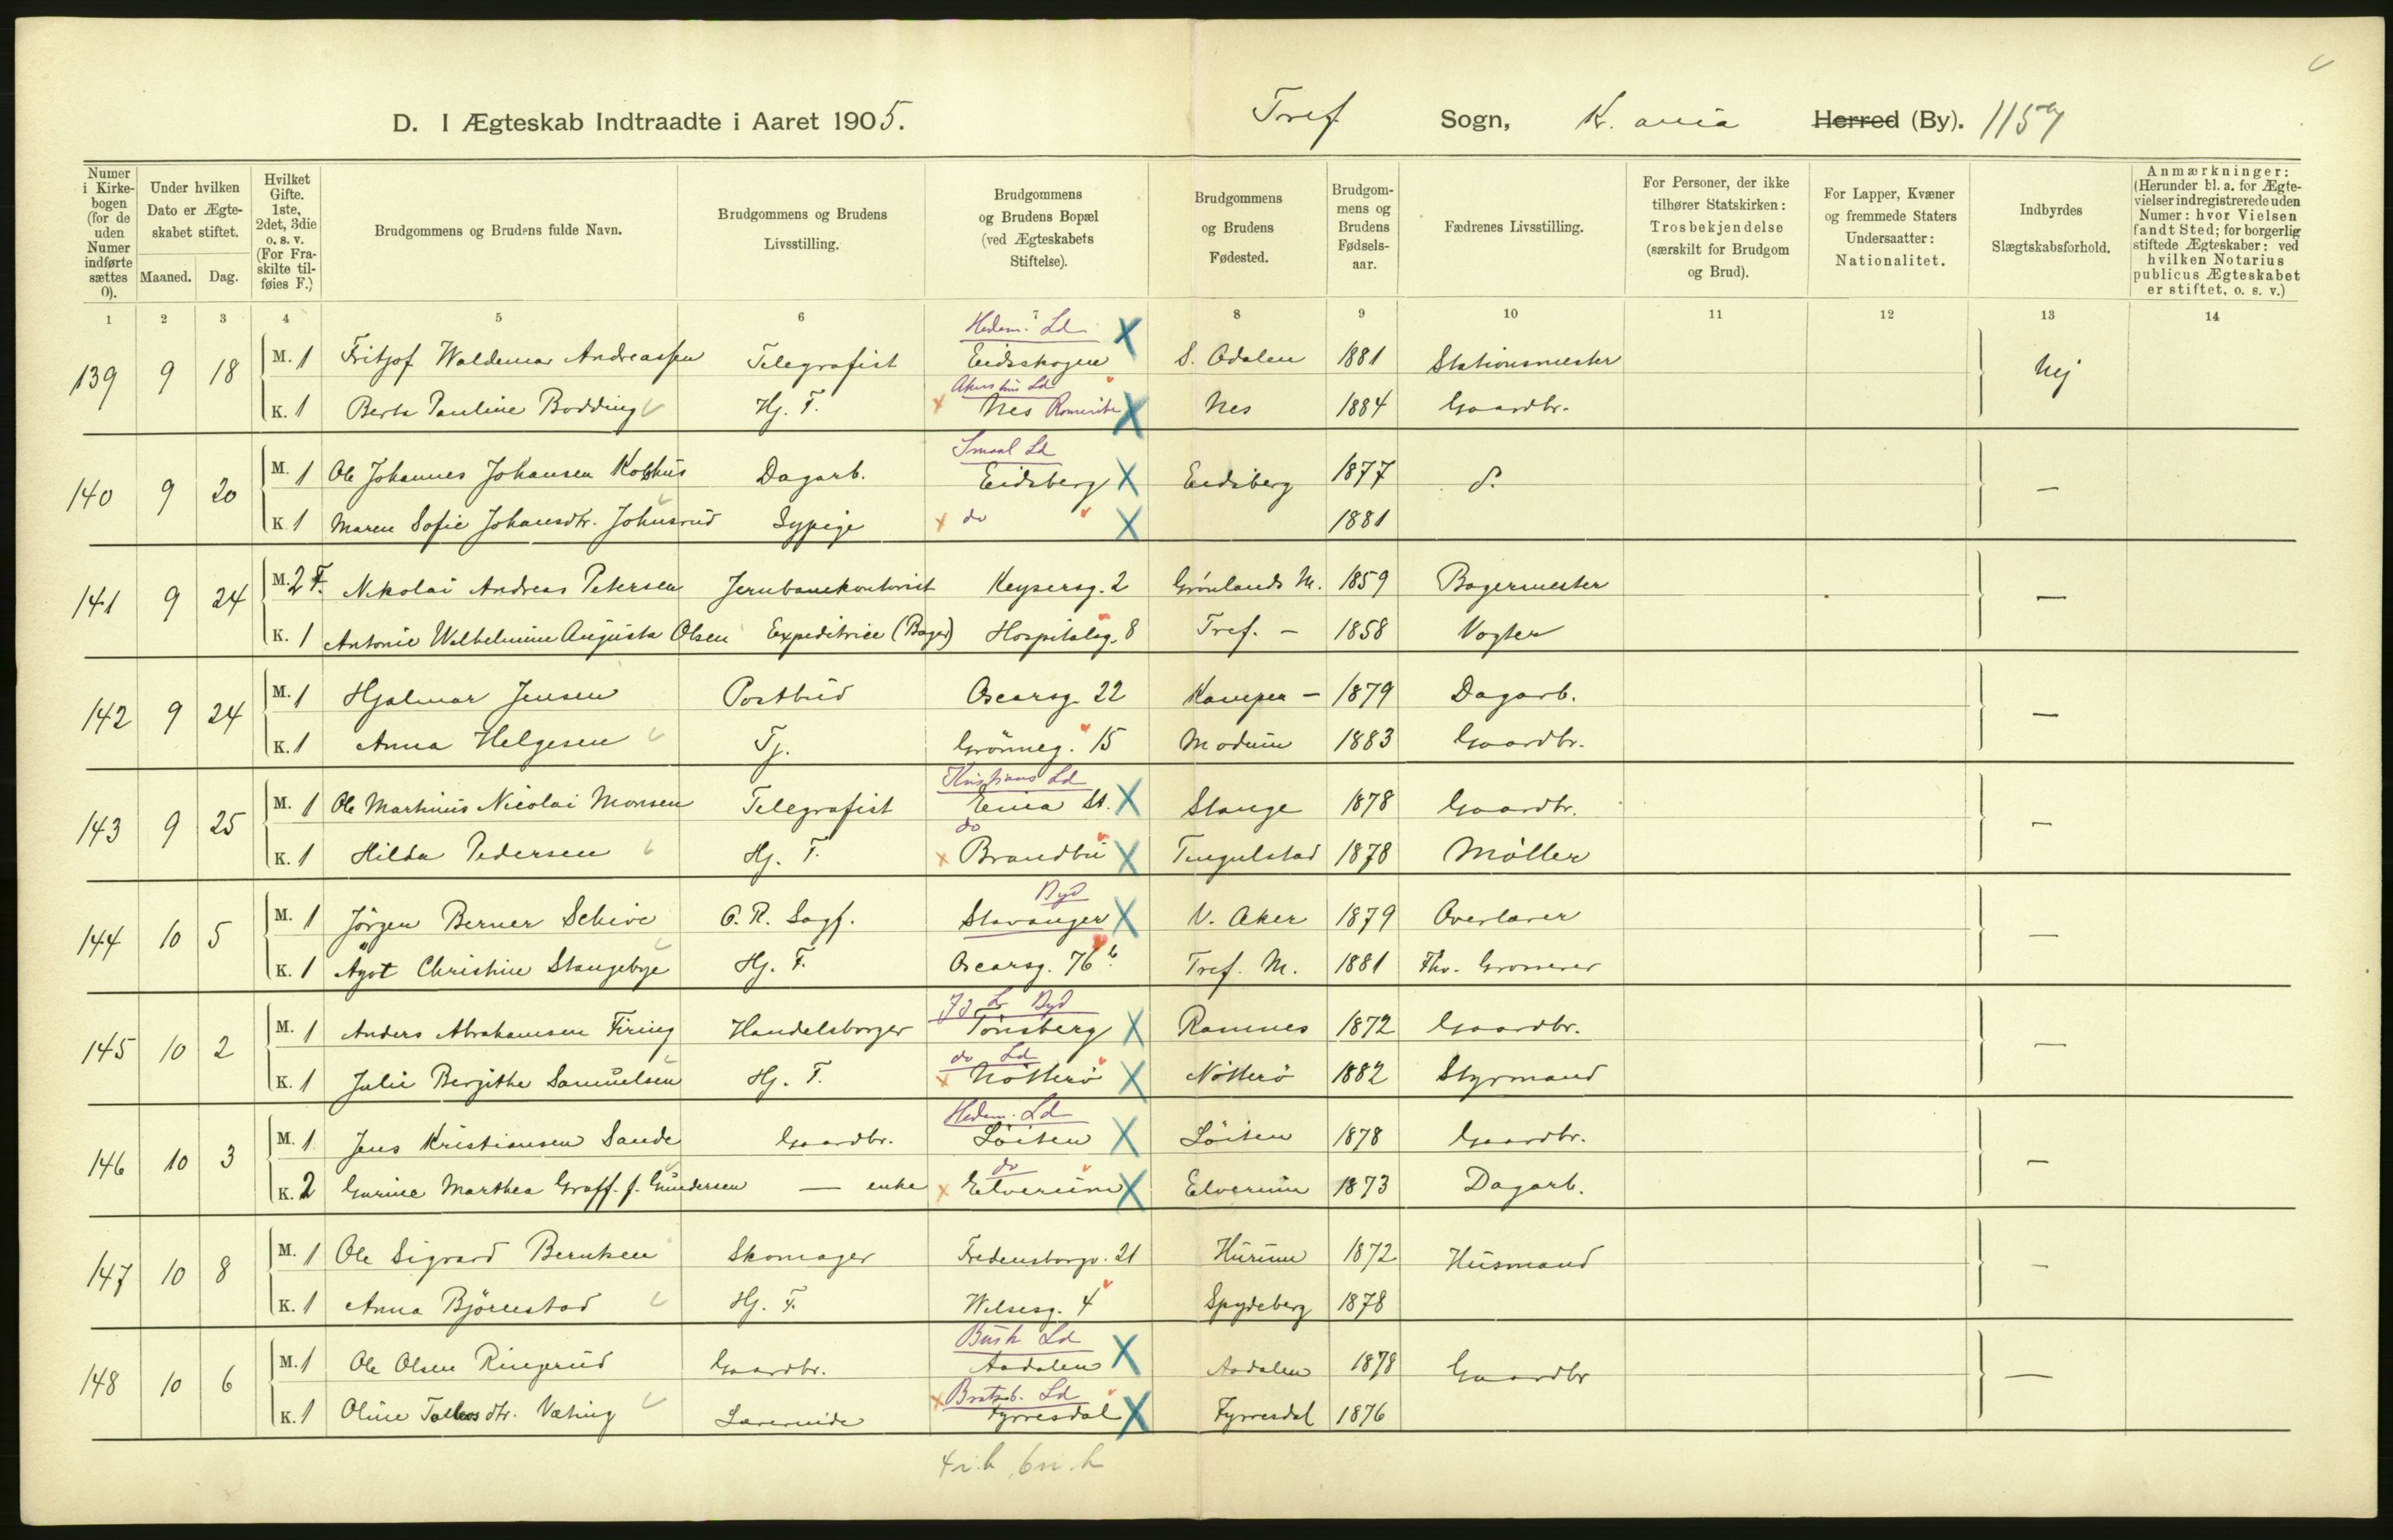 D. I Ægteskab Indtraadte i Aaret 1905. Tref Sogn, Kr. ania Herred (By). 1157
Numer i Kirkebogen (for de uden Numer indførte sættes 0).
Under hvilken Dato er Ægteskabet stiftet.
Maaned. Dag.
Hvilket Gifte. 1ste, 2det, 3die o. s. v. (For Fraskilte tilføies F.)
Brudgommens og Brudens fulde Navn.
Brudgommens og Brudens Livsstilling.
Brudgommens og Brudens Bopæl (ved Ægteskabets Stiftelse).
Brudgommens og Brudens Fødested.
Brudgommens og Brudens Fødselsaar.
Fædrenes Livsstilling.
For Personer, der ikke tilhører Statskirken: Trosbekjendelse (særskilt for Brudgom og Brud).
For Lapper, Kvæner og fremmede Staters Undersaatter: Nationalitet.
Indbyrdes Slægtskabsforhold.
Anmærkninger: (Herunder bl. a. for Ægtevielser indregistrerede uden Numer: hvor Vielsen fandt Sted; for borgerlig stiftede Ægteskaber: ved hvilken Notarius publicus Ægteskabet er stiftet, o. s. v.)
1 2 3 4 5 6 7 8 9 10 11 12 13 14
Hedem. Ld
139 9 18 M. 1 Fritjof Waldemar Andreassen Telegrafist Eidsskogen S. Odalen 1881 Stationsmester Nej
Akershus Ld
K. 1 Berta Pauline Bodding Hj. F. Nes Romerike Nes 1884 Gaardbr.
Smaal Ld
140 9 20 M. 1 Ole Johannes Johansen Dagarb. Eidsberg Eidsberg 1877 S. —
K. 1 Maren Sofie Johansdtr. Johnsrud Sypige do 1881
141 9 24 M. 2 F. Nikolai Andreas Petersen Jernbanekontorist Keysersg. 2 Grønlands M. 1859 Bagermester —
K. 1 Antonie Wilhelmine Augusta Olsen Expeditrice (Bager) Hospitalsg. 8 Tref. — 1858 Vogter
142 9 24 M. 1 Hjalmar Jensen Postbud Oscarsg. 22 Kampen — 1879 Dagarb. —
K. 1 Anna Helgesen Tj. Grønneg. 15 Modum 1883 Gaardbr.
Kristians Ld
143 9 25 M. 1 Ole Martinius Nicolai Monsen Telegrafist Eina St. Stange 1878 Gaardbr. —
do
K. 1 Hilda Pedersen Hj. F. Brandbu Tingelstad 1878 Møller
Byd
144 10 5 M. 1 Jörgen Berner Schive O. R. Sagf. Stavanger V. Aker 1879 Overlærer —
K. 1 Ågot Christine Stangebye Hj. F. Oscarsg. 76 b. Tref. M. 1881 Fhv. Grosserer
J J L Byd
145 10 2 M. 1 Anders Abrahamsen Firing Handelsborger Tönsberg Ramnes 1872 Gaardbr. —
do Ld
K. 1 Julie Bergithe Samuelsen Hj. F. Nötterö Nötterö 1882 Styrmand
Hedem. Ld
146 10 3 M. 1 Jens Kristiansen Sande Gaardbr. Löiten Löiten 1878 Gaardbr. —
do
K. 2 Gurine Marthea Graff. f. Gundersen — enke Elverum Elverum 1873 Dagarb.
147 10 8 M. 1 Ole Sigvard Berntsen Skomager Fredensborgv. 21 Hurum 1872 Husmand —
K. 1 Anna Björnstad Hj. F. Wilsesg. 4 Spydeberg 1878
Busk Ld
148 10 6 M. 1 Ole Olsen Ringerud Gaardbr. Aadalen Aadalen 1878 Gaardbr —
Bratsb. Ld
K. 1 Oline dtr. Væting Lærerinde Fyrresdal Fyrresdal 1876